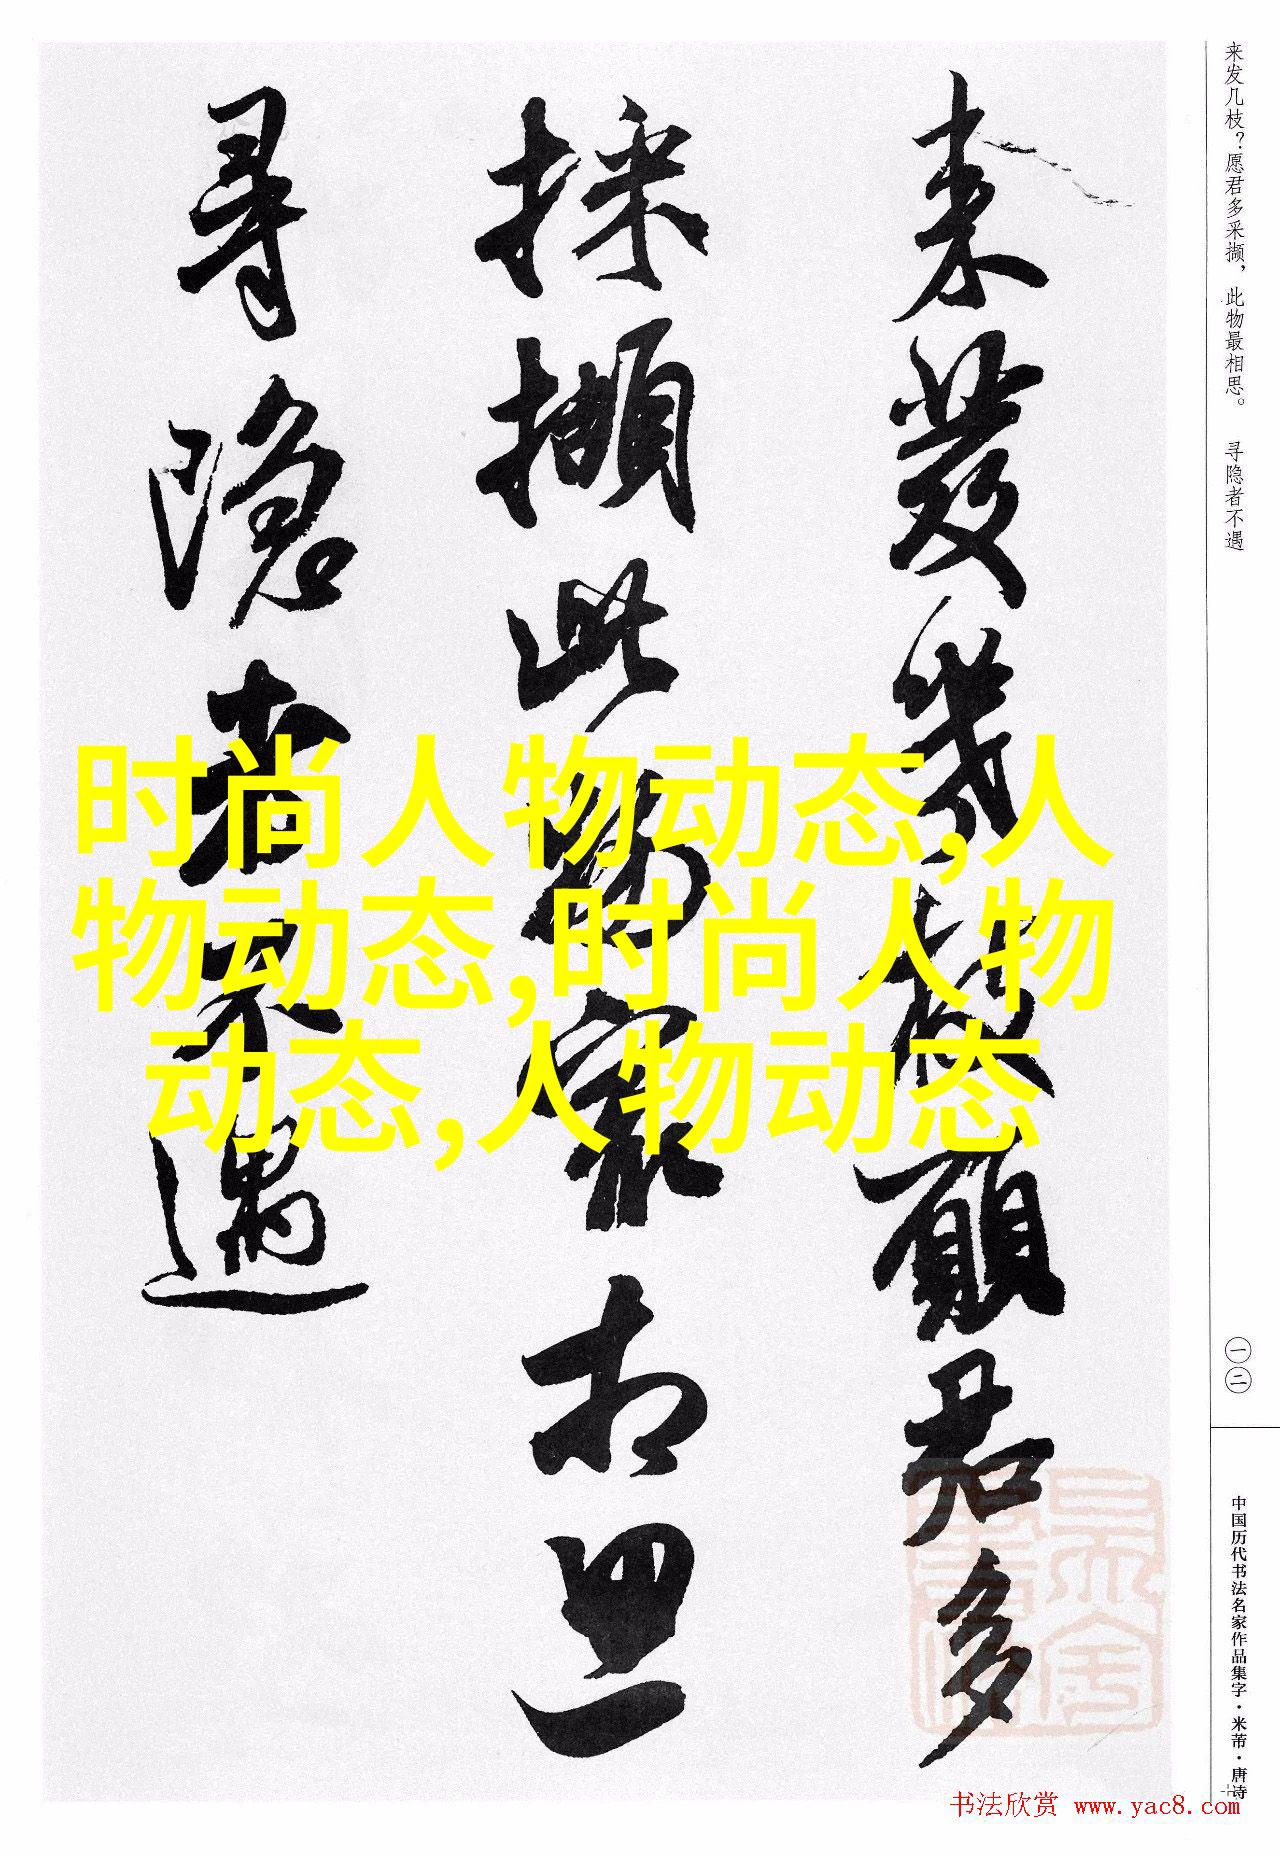 来发几枝？愿君多采撷，此物最相思。 寻隐者不遇
一二
中国历代书法名家作品集字·米芾·唐诗
来發幾枝願君多
採擷此物最相思
尋隱者不遇
时尚人物动态,人
物动态,时尚人物
动态,人物动态
书法欣赏 www.yac8.com